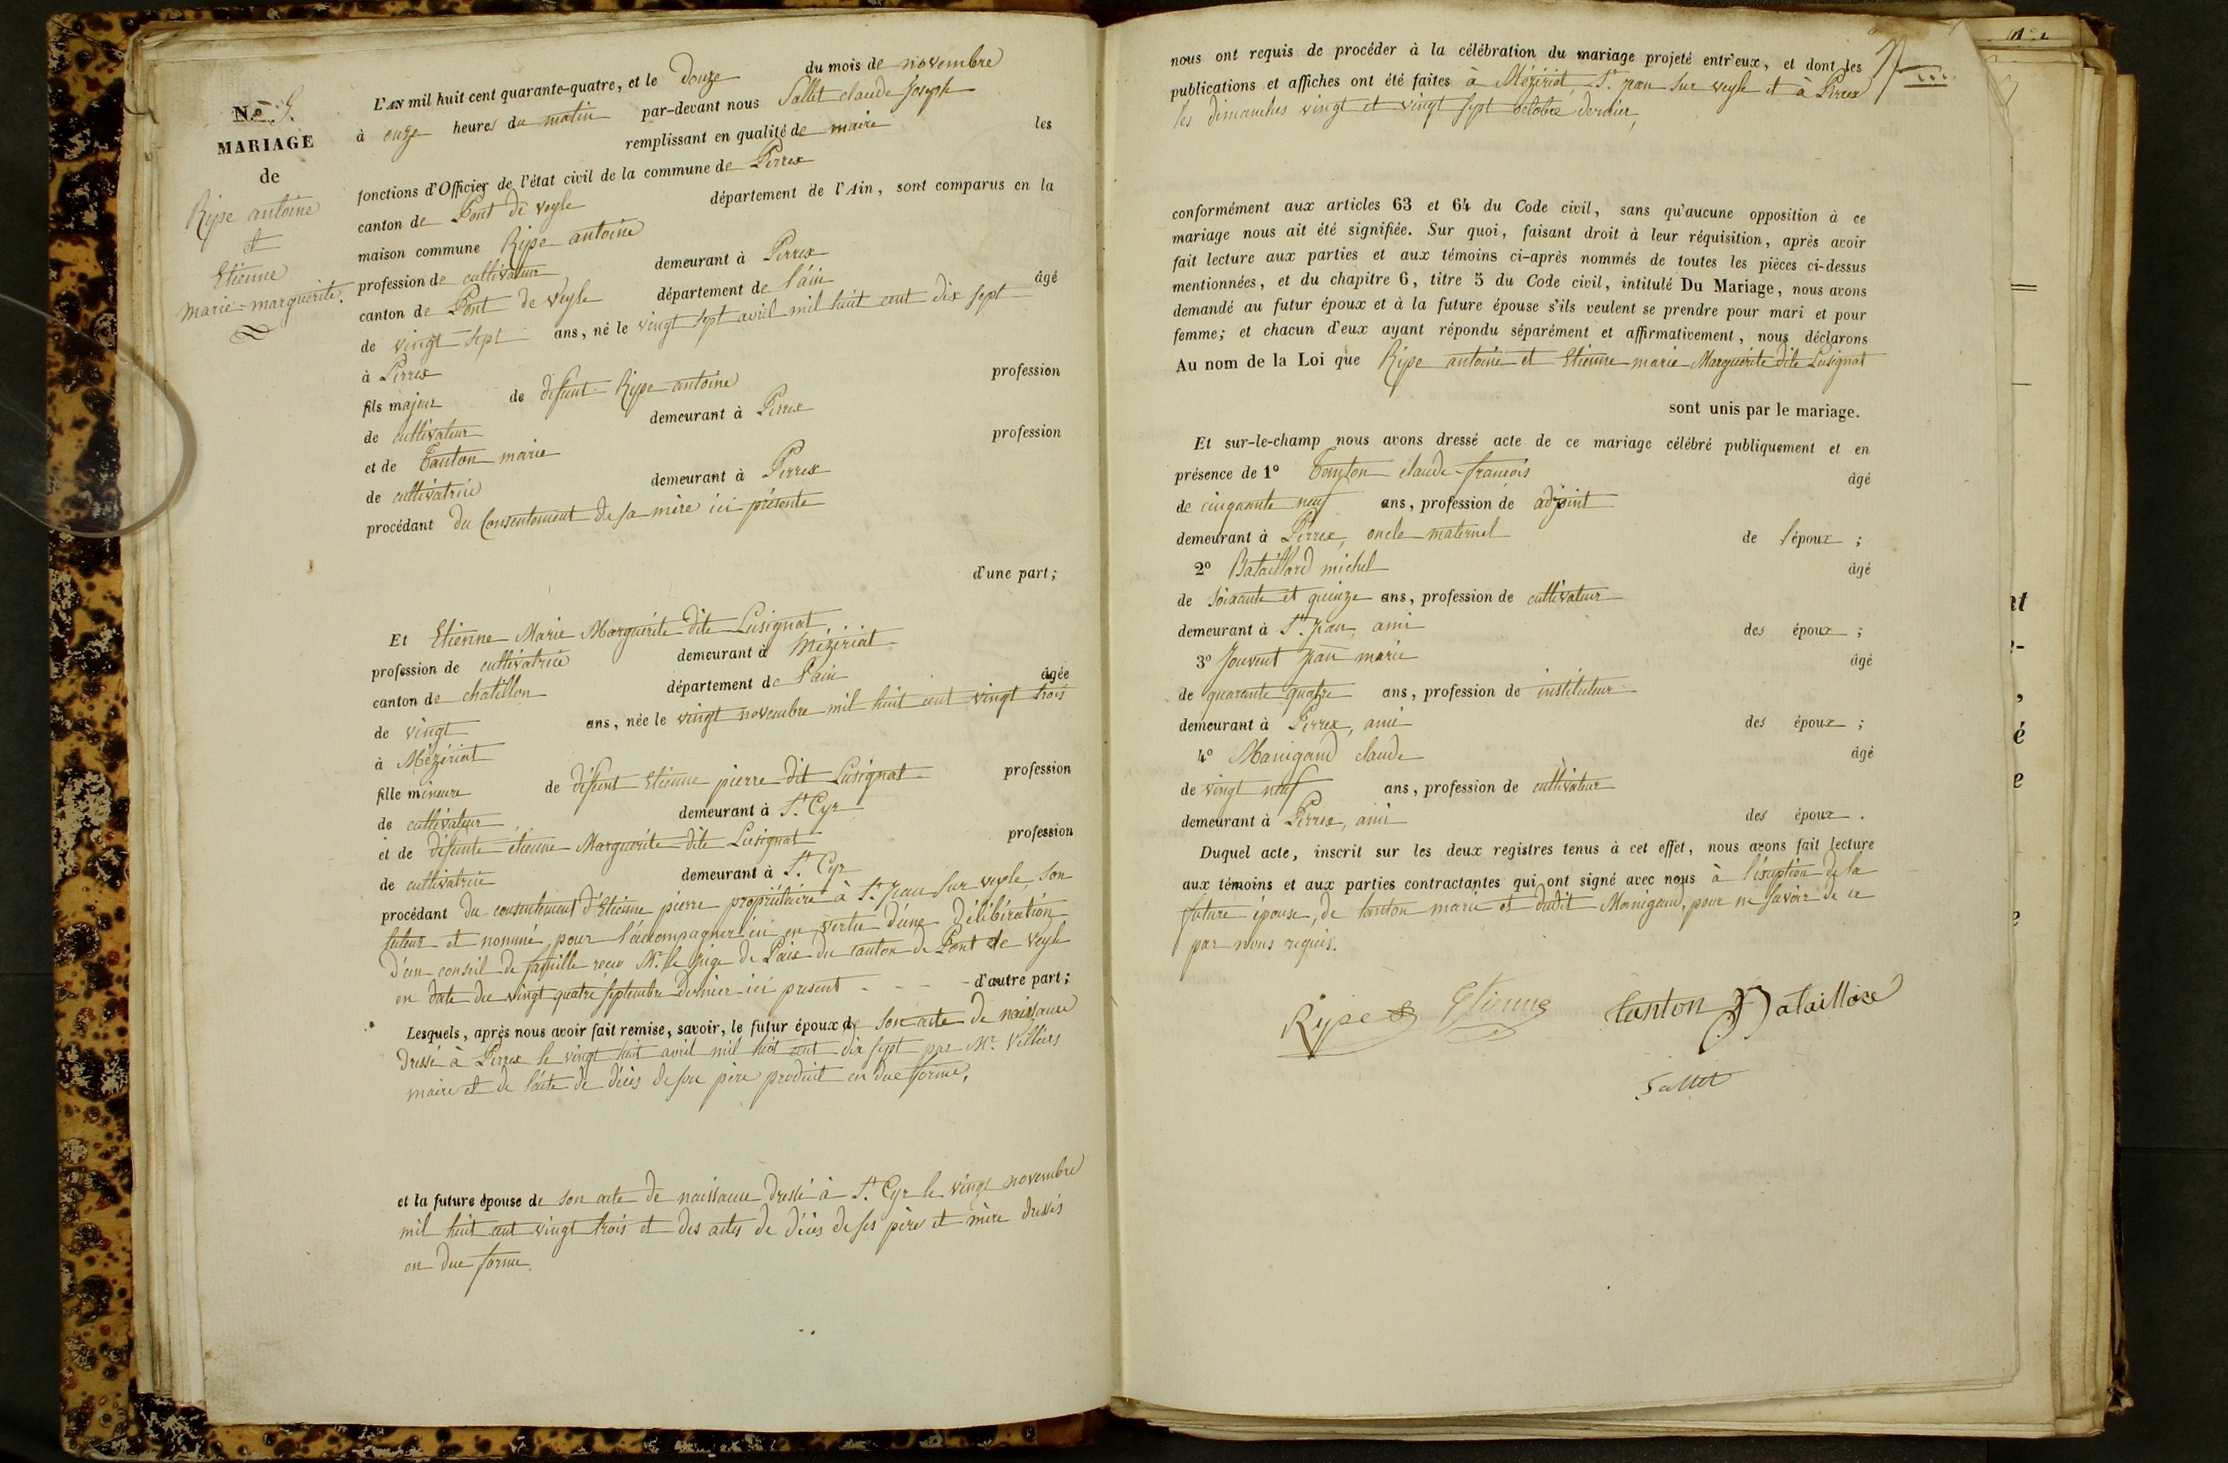 N.° 5.
MARIAGE
de
Ripe antoine
et
Etienne
marie-marguerite.
L'AN mil huit cent quarante-quatre, et le Douze du mois de novembre
à onze heures du matin par-devant nous Sallet claude Joseph
remplissant en qualité de maire les
fonctions d'Officier de l'état civil de la commune de Perrex
canton de Pont de veyle département de l'Ain, sont comparus en la
maison commune Ripe antoine
profession de cultivateur demeurant à Perrex
canton de Pont de Veyle département de l'ain âgé
de vingt-sept ans, né le vingt sept avril mil huit cent dix sept
à Perrex
fils majeur de défunt Ripe antoine profession
de cultivateur demeurant à Perrex
et de Tanton marie profession
de cultivatrice demeurant à Perrex
procédant du Consentement de sa mère ici présente
d'une part;
Et Etienne Marie Marguerite dite Lusignat
profession de cultivatrice demeurant à Mézériat
canton de chatillon département de l'ain âgée
de vingt ans, née le vingt novembre mil huit cent vingt trois
à Mézériat
fille mineure de défunt Etienne pierre dit Lusignat profession
de cultivateur demeurant à St. Cyr
et de défunte etienne Marguerite dite Lusignat profession
de cultivatrice demeurant à St. Cyr
procédant du consentement d'Etienne pierre propriétaire à St. Jean sur veyle, son
tuteur et nommé pour l'accompagner ici en vertu d'une Délibération
d'un conseil de famille reçu Mr. le Juge de Paix du canton de Pont de Veyle
en date du vingt quatre septembre dernier ici présent - - - - d'autre part;
Lesquels, après nous avoir fait remise, savoir, le futur époux de son acte de naissance
dressé à Perrex le vingt huit avril mil huit cent dix sept par Mr. Villiers
maire et de l'acte de décès de son père produit en due forme,
et la future épouse de son acte de naissance dressé à St. Cyr le vingt novembre
mil huit cent vingt trois et des actes de décès de ses père et mère dressés
en due forme.
nous ont requis de procéder à la célébration du mariage projeté entr'eux, et dont les
publications et affiches ont été faites à Mézériat, St. jean sur veyle et à Perrex
les dimanches vingt et vingt sept octobre dernier,
conformément aux articles 63 et 64 du Code civil, sans qu'aucune opposition à ce
mariage nous ait été signifiée. Sur quoi, faisant droit à leur réquisition, après avoir
fait lecture aux parties et aux témoins ci-après nommés de toutes les pièces ci-dessus
mentionnées, et du chapitre 6, titre 5 du Code civil, intitulé Du Mariage, nous avons
demandé au futur époux et à la future épouse s'ils veulent se prendre pour mari et pour
femme; et chacun d'eux ayant répondu séparément et affirmativement, nous déclarons
Au nom de la Loi que Ripe antoine et Etienne marie Marguerite dite Lusignat
sont unis par le mariage.
Et sur-le-champ nous avons dressé acte de ce mariage célébré publiquement et en
présence de 1° Tanton claude-françois âgé
de cinquante neuf ans, profession de adjoint
demeurant à Perrex, oncle maternel de l'époux ;
2° Bataillard michel âgé
de soixante et quinze ans, profession de cultivateur
demeurant à St. Jean, ami des époux ;
3° Jouvent Jean marie âgé
de quarante quatre ans, profession de instituteur
demeurant à Perrex, ami des époux ;
4° Manigand claude âgé
de vingt neuf ans, profession de cultivateur
demeurant à Perrex, ami des époux .
Duquel acte, inscrit sur les deux registres tenus à cet effet, nous avons fait lecture
aux témoins et aux parties contractantes qui ont signé avec nous à l'exception de la
future épouse, de tanton marie et dudit Manigand, pour ne savoir de ce
par nous requis.
Ripe Etienne tanton Bataillard
Sallet